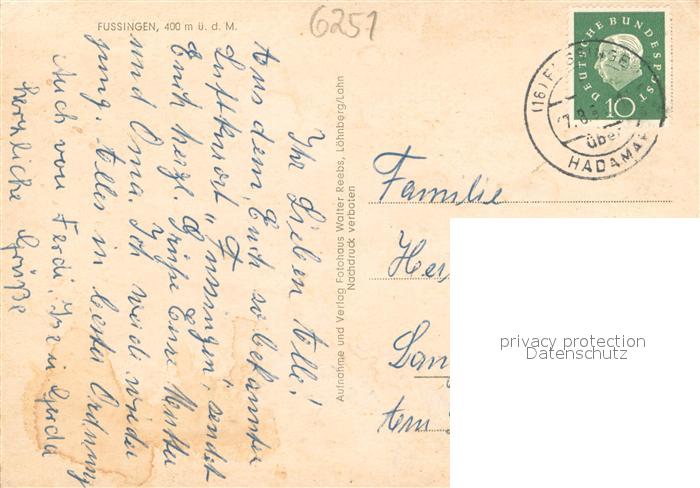 FUSSINGEN, 400 m ü. d. M.
6251
Ihr Lieben Alle!
Aus dem, Euch so bekannten
Luftkurort „Fussingen", sendet
Euch herzl. Grüße Eure Mutter
und Oma. Ich werde wieder
jung. Alles in bester Ordnung
Auch von Ferdi, u Gerda
herzliche Grüße
Aufnahme und Verlag Fotohaus Walter Reebs, Löhnberg/Lahn
Nachdruck verboten
DEUTSCHE BUNDESPOST
10
(16)
über
HADAMAR
Familie
Her
Lan
Am
privacy protection
Datenschutz